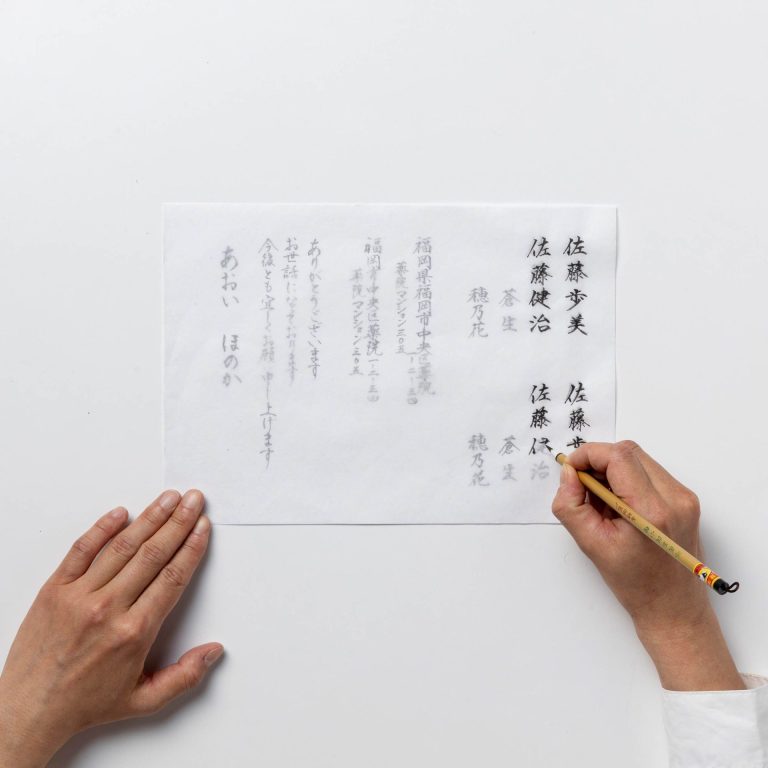 佐藤歩美
佐藤健治
蒼生
穂乃花
佐藤歩
佐藤健治
蒼生
穂乃花
福岡県福岡市中央区薬院一-二-三四
薬院マンション三〇五
福岡市中央区薬院一-二-三四
薬院マンション三〇五
ありがとうございます
お世話になっております
今後とも宜しくお願い申し上げます
あおい ほのか